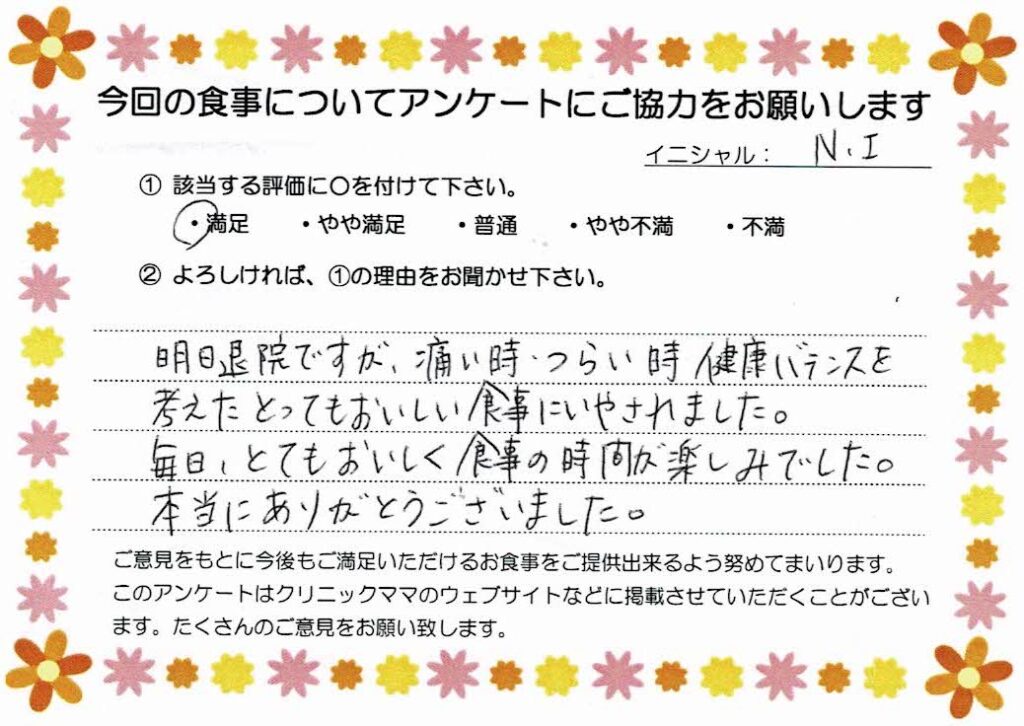 今回の食事についてアンケートにご協力をお願いします
イニシャル： N.I
① 該当する評価に〇を付けて下さい。
・満足 ・やや満足 ・普通 ・やや不満 ・不満
② よろしければ、①の理由をお聞かせ下さい。
明日退院ですが、痛い時・つらい時 健康バランスを
考えたとってもおいしい食事にいやされました。
毎日、とてもおいしく食事の時間が楽しみでした。
本当にありがとうございました。
ご意見をもとに今後もご満足いただけるお食事をご提供出来るよう努めてまいります。
このアンケートはクリニックママのウェブサイトなどに掲載させていただくことがござい
ます。たくさんのご意見をお願い致します。